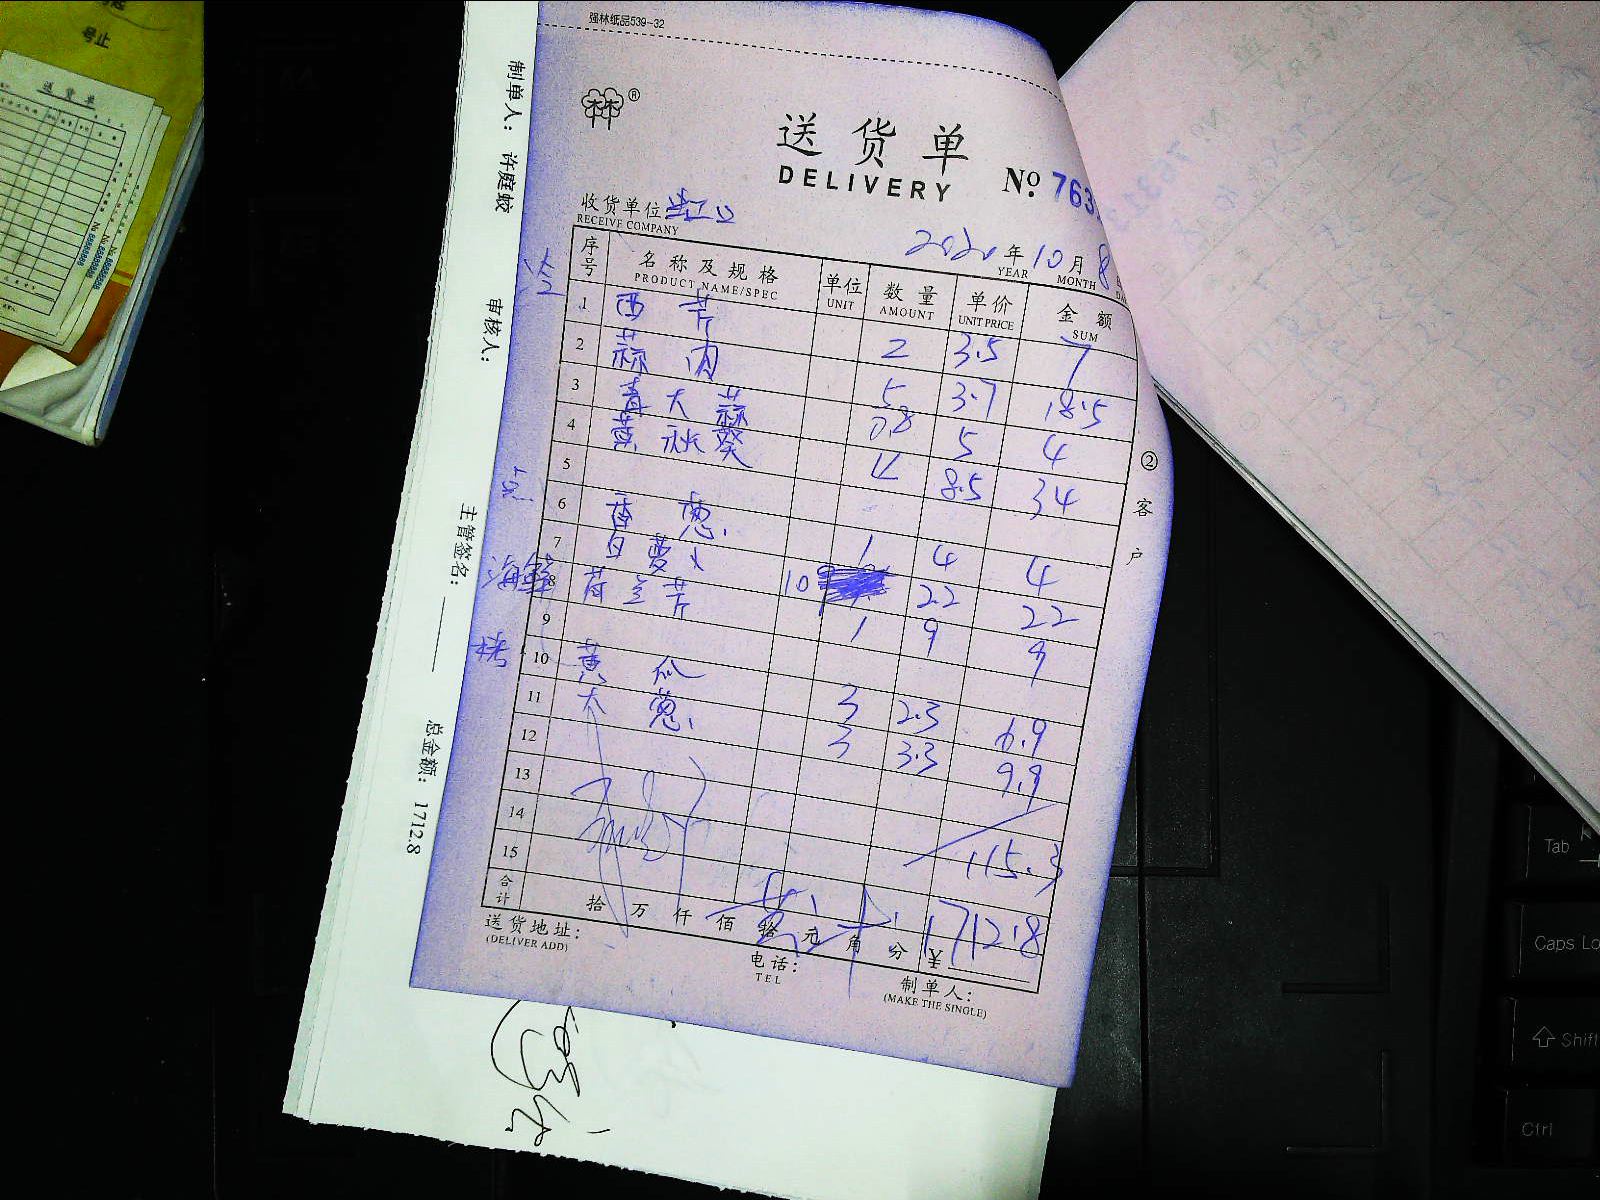 强林纸品539-32
®
送货单
DELIVERY
№ 763
收货单位
RECEIVE COMPANY
2020 年 10 月 8
YEAR MONTH
序号 名称及规格 单位 数量 单价 金额
PRODUCT NAME/SPEC UNIT AMOUNT UNIT PRICE SUM
1 西芹 2 3.5 7
2 蒜肉 5 3.7 18.5
3 青大蒜 0.8 5 4
4 黄秋葵 4 8.5 34
5
6 香葱 1 4 4
7 白萝卜 10 2.2 22
8 荷兰芹 1 9 9
9
10 黄瓜 3 2.3 6.9
11 大葱 3 3.3 9.9
12
13
14 115.3
15
合计 拾 万 仟 佰 拾 元 角 分 ¥ 1712.8
送货地址:
(DELIVER ADD)
电话:
TEL
制单人:
(MAKE THE SINGLE)
②客户
海鲜
制单人: 许庭蛟
审核人:
主管签名:
总金额: 1712.8
号止
送货单
Tab
Caps Lo
Shift
Ctrl